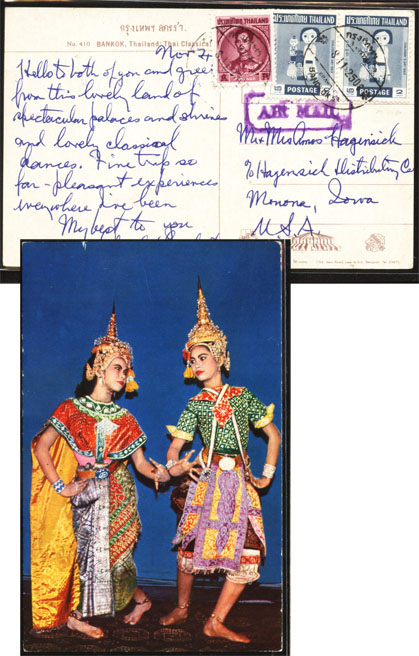 กรุงเทพฯ ละครรำ.
No. 410 BANKOK, Thailand: Thai Classical
Nov 7
Hello to both of you and greet
from this lovely land of
spectacular palaces and shrines
and lovely classical
dances. Fine trip so
far - pleasant experiences
everywhere I've been
My best to you
ประเทศไทย THAILAND
ประเทศไทย THAILAND
ประเทศไทย THAILAND
POSTAGE
POSTAGE
AIR MAIL
Mr & Mrs Amos Hagensick
% Hagensick Distributing Co
Monona, Iowa
U.S.A.